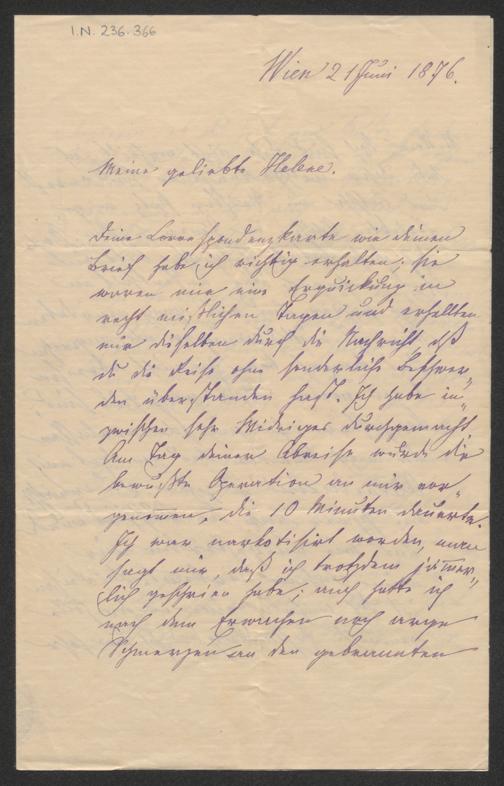 I.N. 236.366
Wien 21 Juni 1876.
Meine geliebte Helene.
Deine Correspondenzkarte wie deinen
Brief habe ich richtig erhalten; sie
waren mir eine Erquickung in
recht mißlichen Tagen und erhellten
mir dieselben durch die Nachricht daß
du die Reise ohne sonderliche Beschwer„
den überstanden hast. Ich habe in„
zwischen sehr Widriges durchgemacht
Am Tag deiner Abreise wurde die
bewußte Operation an mir vor„
genomen, die 10 Minuten dauerte.
Ich war narkotisirt worden, man
sagt mir, daß ich trotzdem jämer„
lich geschrien habe; auch hatte ich
nach dem Erwachen noch arge
Schmerzen an den gebrannten